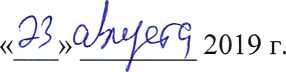 «23» августа 2019 г.